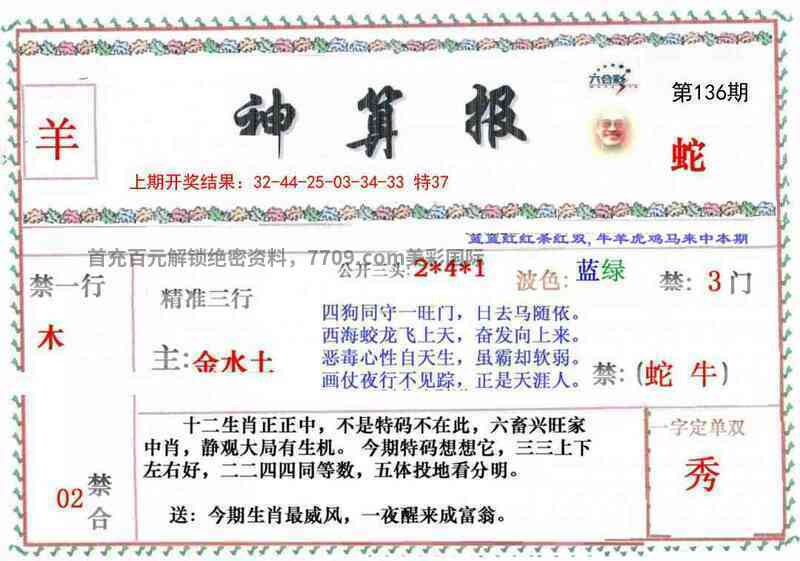 神算报
六合彩
第136期
羊
蛇
上期开奖结果：32-44-25-03-34-33 特37
蓝蓝红红条红双,牛羊虎鸡马来中本期
首充百元解锁绝密资料，7709.com美彩国际
禁一行
木
精准三行
主:金水土
公开三头:2*4*1
波色:蓝绿
禁:3门
四狗同守一旺门，日去乌随依。
西海蛟龙飞上天，奋发向上来。
恶毒心性自天生，虽霸却软弱。
画仗夜行不见踪，正是天涯人。
禁:(蛇 牛)
02
禁合
十二生肖正正中，不是特码不在此，六畜兴旺家
中肖，静观大局有生机。今期特码想想它，三三上下
左右好，二二四四同等数，五体投地看分明。
送：今期生肖最威风，一夜醒来成富翁。
一字定单双
秀